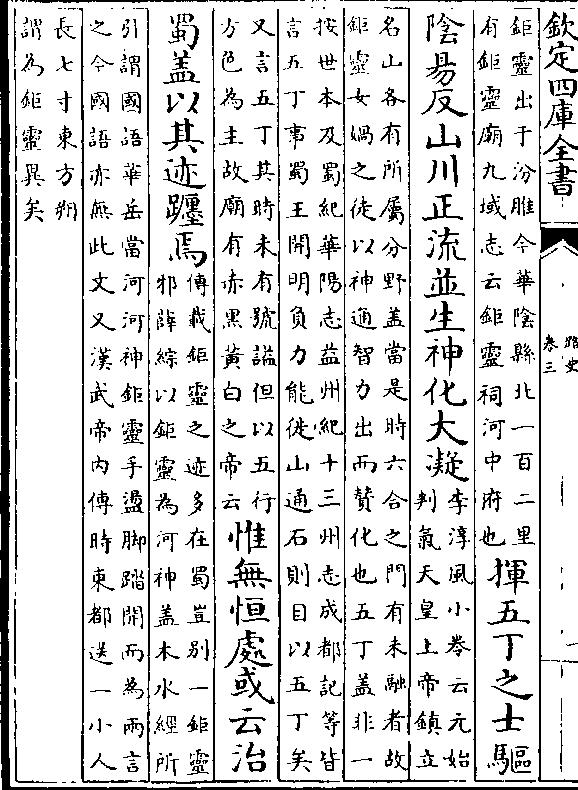 欽定四庫全書
路史
卷三
鉅靈出于汾脽今華陰縣北一百二里
有鉅靈廟九域志云鉅靈祠河中府也
揮五丁之士驅
陰昜反山川正流並生神化大凝
李淳風小卷云元始
判氣天皇上帝鎮立
名山各有所屬分野盖當是時六合之門有未融者故
鉅靈女媧之徒以神通智力出而賛化也五丁盖非一
按世本及蜀紀華陽志益州紀十三州志成都記等皆
言五丁事蜀王開明負力能徙山通石則目以五丁矣
又言五丁其時未有號諡但以五行
方色為主故廟有赤黑黃白之帝云
惟無恒處或云治
蜀盖以其迹躔焉
傳載鉅靈之迹多在蜀豈别一鉅靈
邪薛綜以鉅靈為河神盖本水經所
引謂國語華岳當河河神鉅靈手盪脚踏開而為兩言
之今國語亦無此文又漢武帝内傳時東都送一小人
長七寸東方朔
謂為鉅靈異矣